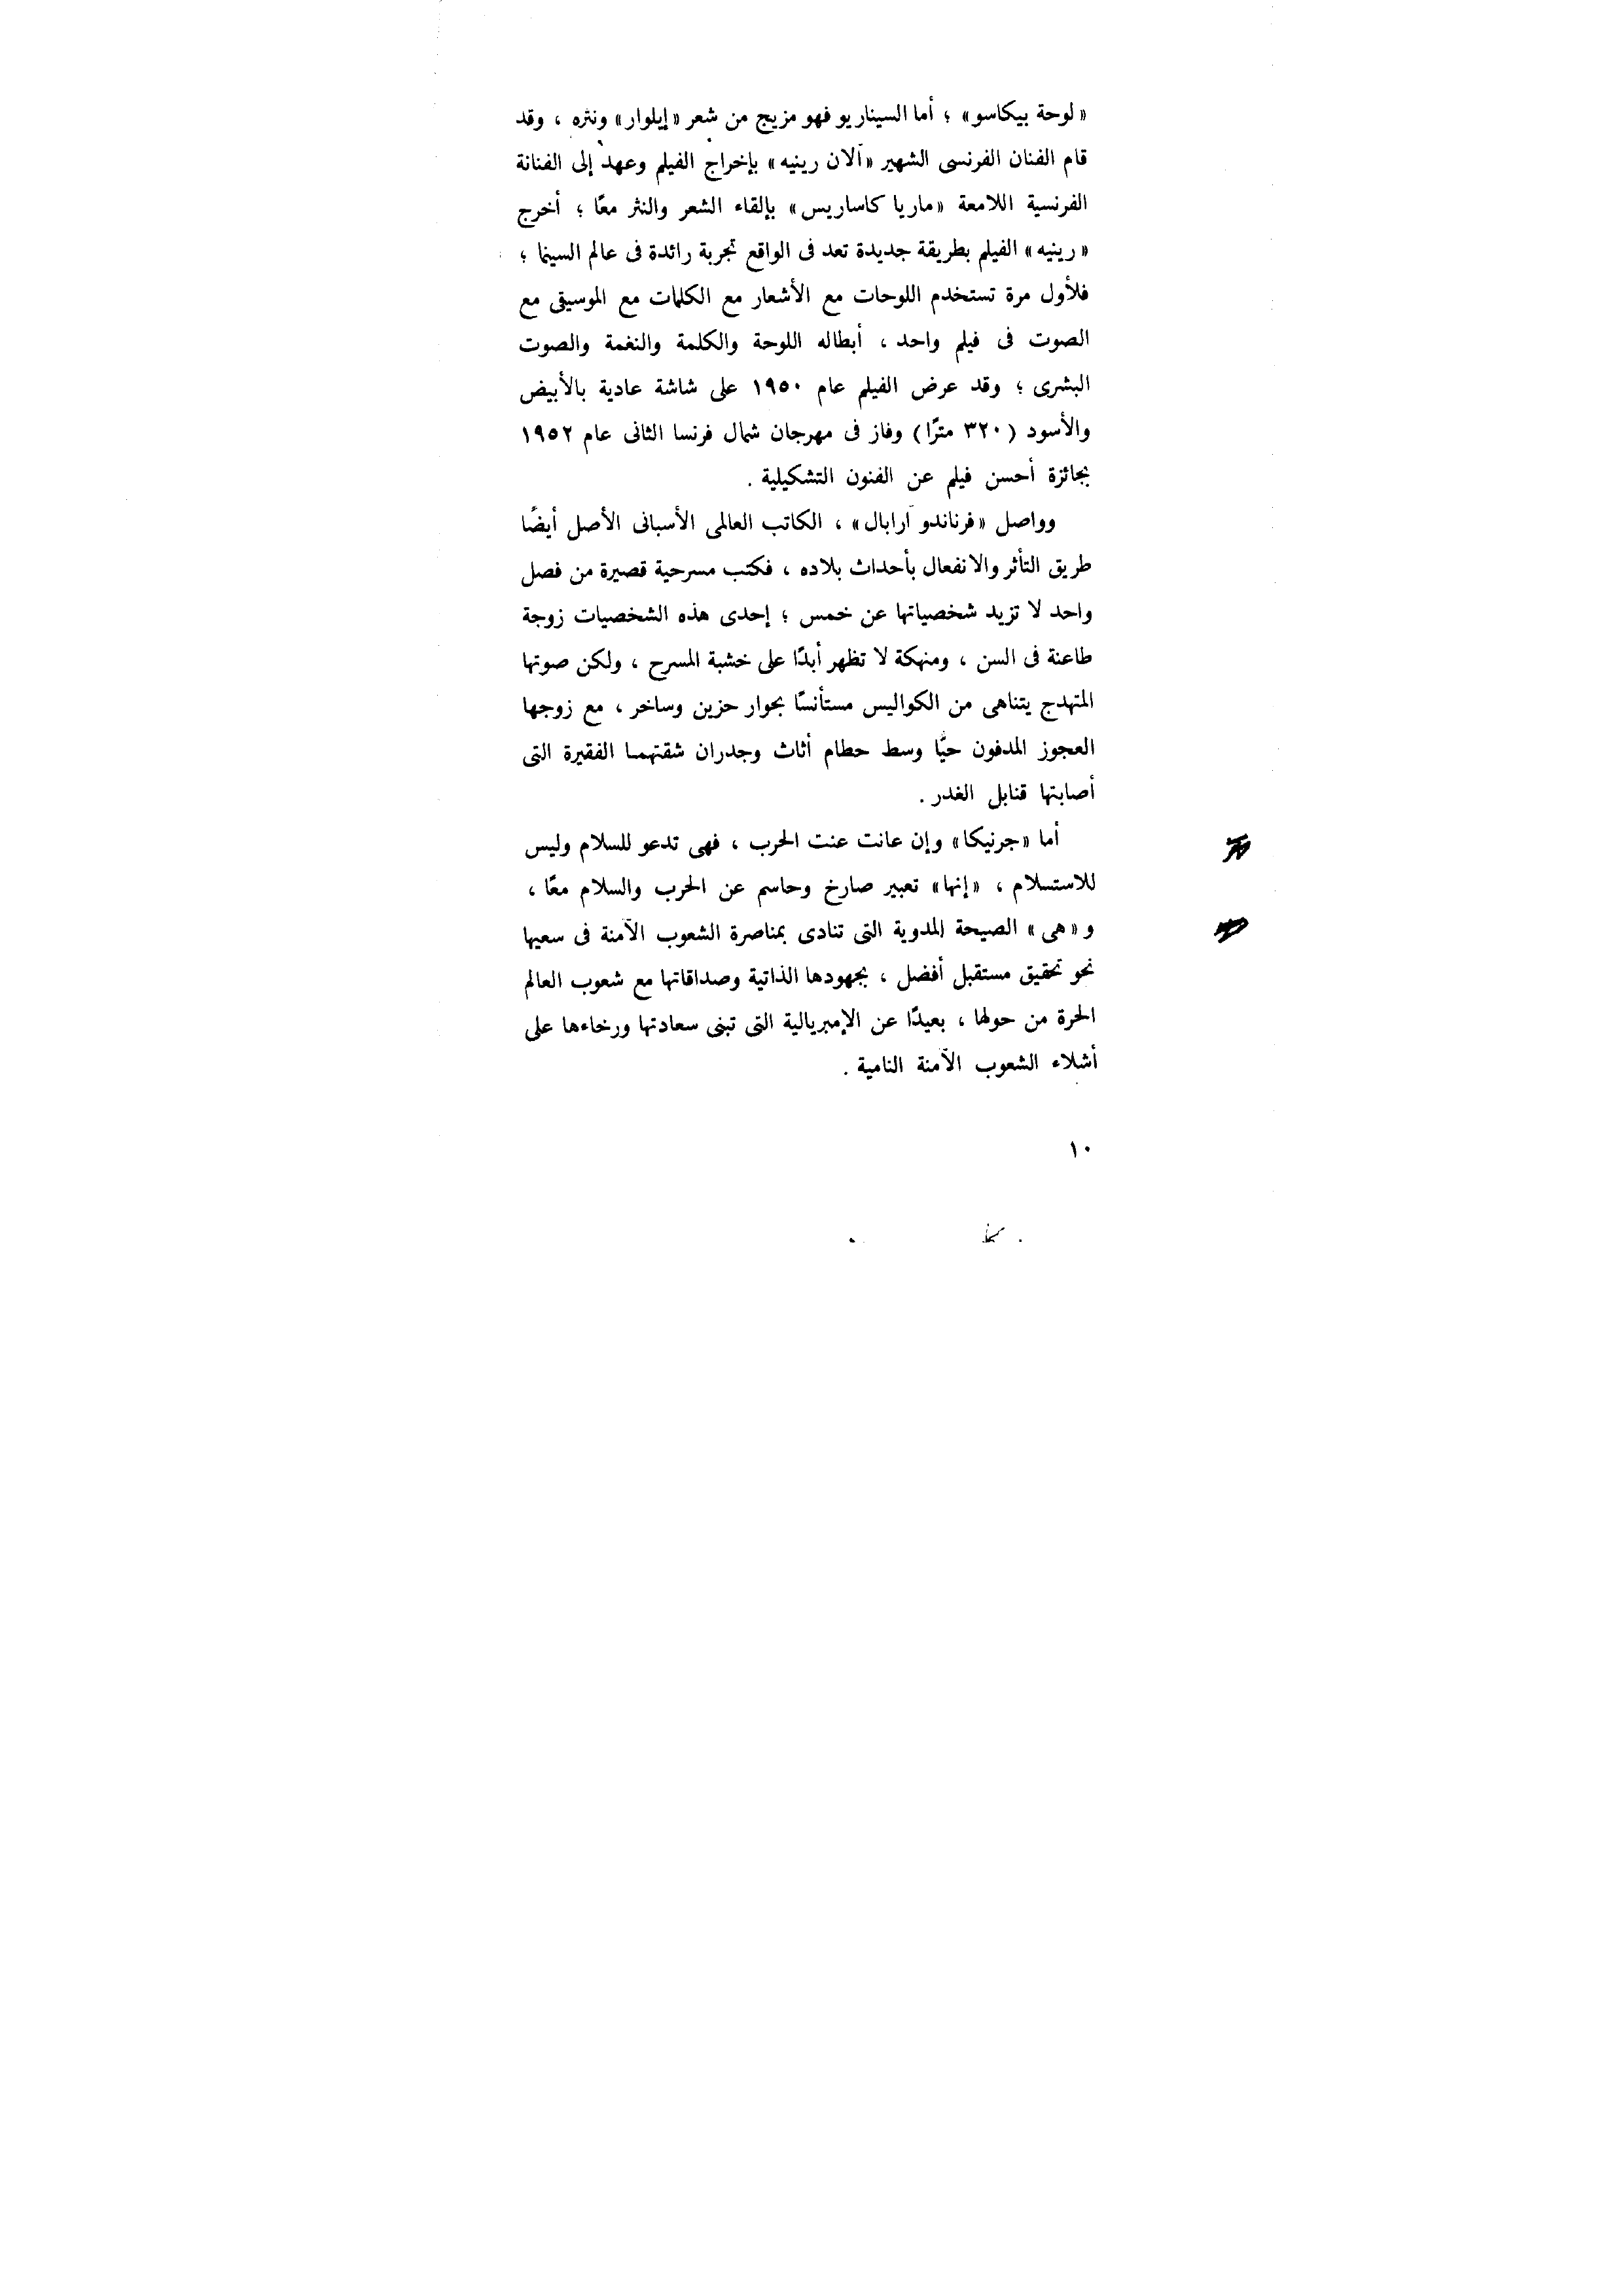 «لوحة بيكاسو» ؛ أما السيناريو فهو مزيج من شعر «إيلوار» ونثره ، وقد
قام الفنان الفرنسى الشهير «آلان رينيه» بإخراج الفيلم وعهد إلى الفنانة
الفرنسية اللامعة «ماريا كاساريس» بإلقاء الشعر والنثر معًا ؛ أخرج
«رينيه» الفيلم بطريقة جديدة تعد فى الواقع تجربة رائدة فى عالم السينما ؛
فلأول مرة تستخدم اللوحات مع الأشعار مع الكلمات مع الموسيقى مع
الصوت فى فيلم واحد ، أبطاله اللوحة والكلمة والنغمة والصوت
البشرى ؛ وقد عرض الفيلم عام ١٩٥٠ على شاشة عادية بالأبيض
والأسود (٣٢٠ مترًا) وفاز فى مهرجان شمال فرنسا الثانى عام ١٩٥٢
بجائزة أحسن فيلم عن الفنون التشكيلية .
وواصل «فرناندو آرابال» ، الكاتب العالمى الأسبانى الأصل أيضًا
طريق التأثر والانفعال بأحداث بلاده ، فكتب مسرحية قصيرة من فصل
واحد لا تزيد شخصياتها عن خمس ؛ إحدى هذه الشخصيات زوجة
طاعنة فى السن ، ومنهكة لا تظهر أبدًا على خشبة المسرح ، ولكن صوتها
المتهدج يتناهى من الكواليس مستأنسًا بحوار حزين وساخر ، مع زوجها
العجوز المدفون حيًّا وسط حطام أثاث وجدران شقتهما الفقيرة التى
أصابتها قنابل الغدر .
أما «جرنيكا» وإن عانت عنت الحرب ، فهى تدعو للسلام وليس
للاستسلام ، «إنها» تعبير صارخ وحاسم عن الحرب والسلام معًا ،
و«هى» الصيحة المدوية التى تنادى بمناصرة الشعوب الآمنة فى سعيها
نحو تحقيق مستقبل أفضل ، بجهودها الذاتية وصداقاتها مع شعوب العالم
الحرة من حولها ، بعيدًا عن الإمبريالية التى تبنى سعادتها ورخاءها على
أشلاء الشعوب الآمنة النامية .
١٠